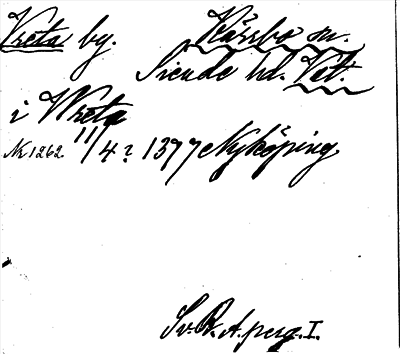 Vreta by. Kärrbo sn.
Siende hd. Vstl.
i Wreta
Nr 1262. 11/4? 1377 Nyköping
Sv. R. A. perg. I.